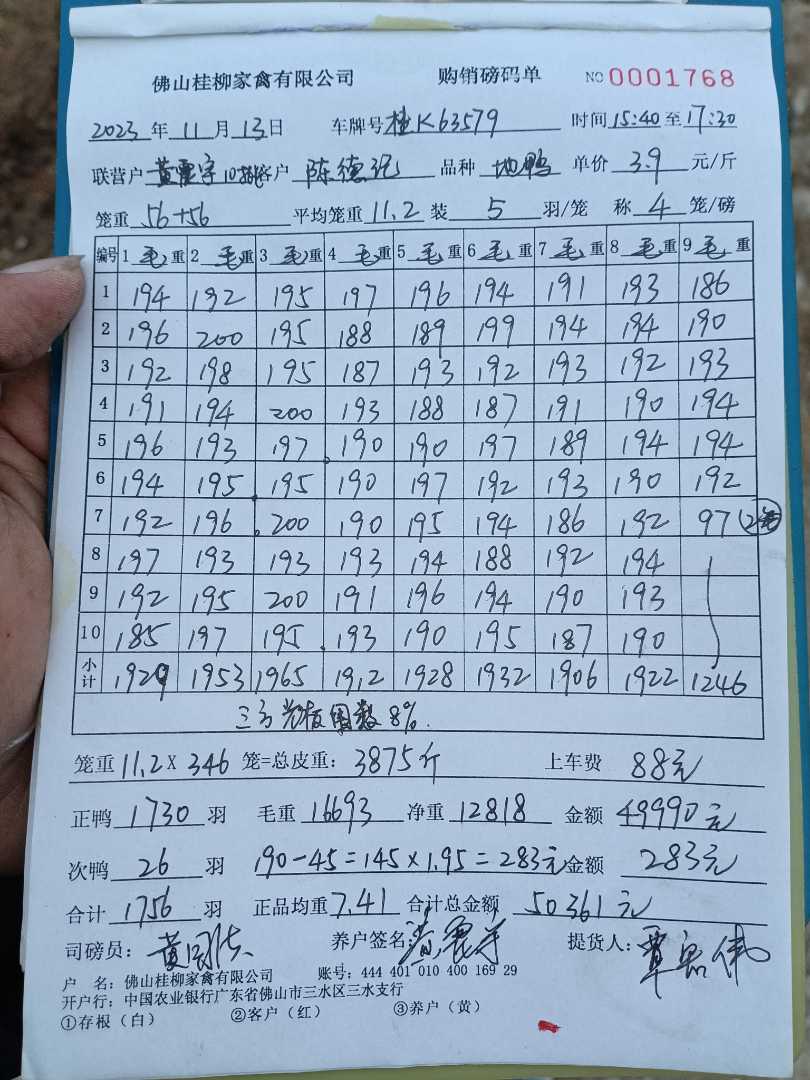 佛山桂柳家禽有限公司 购销磅码单 NO 0001768
2023年11月13日 车牌号桂K63579 时间15:40至17:30
联营户黄震宇10排 客户陈德 品种地鸭 单价3.9元/斤
笼重56+56 平均笼重11.2 装5羽/笼 称4笼/磅
编号 1毛重 2毛重 3毛重 4毛重 5毛重 6毛重 7毛重 8毛重 9毛重
1 194 192 195 197 196 194 191 193 186
2 196 200 195 188 189 199 194 194 190
3 192 198 195 187 193 192 193 192 193
4 191 194 200 193 188 187 191 190 194
5 196 193 197 190 190 197 189 194 194
6 194 195 195 190 197 192 193 190 192
7 192 196 200 190 195 194 186 192 97
8 197 193 193 193 194 188 192 194
9 192 195 200 191 196 194 190 193
10 185 197 195 193 190 195 187 190
小计 1929 1953 1965 1912 1928 1932 1906 1922 1246
三方 8%.
笼重11.2X346笼=总皮重:3875斤 上车费88元
正鸭1730羽 毛重16693 净重12818 金额49990元
次鸭26羽 190-45=145×1.95=283元 金额283元
合计1756羽 正品均重7.41 合计总金额50361元
司磅员: 养户签名:黄震宇 提货人:
户 名:佛山桂柳家禽有限公司 账号:444 401 010 400 169 29
开户行:中国农业银行广东省佛山市三水区三水支行
①存根(白) ②客户(红) ③养户(黄)